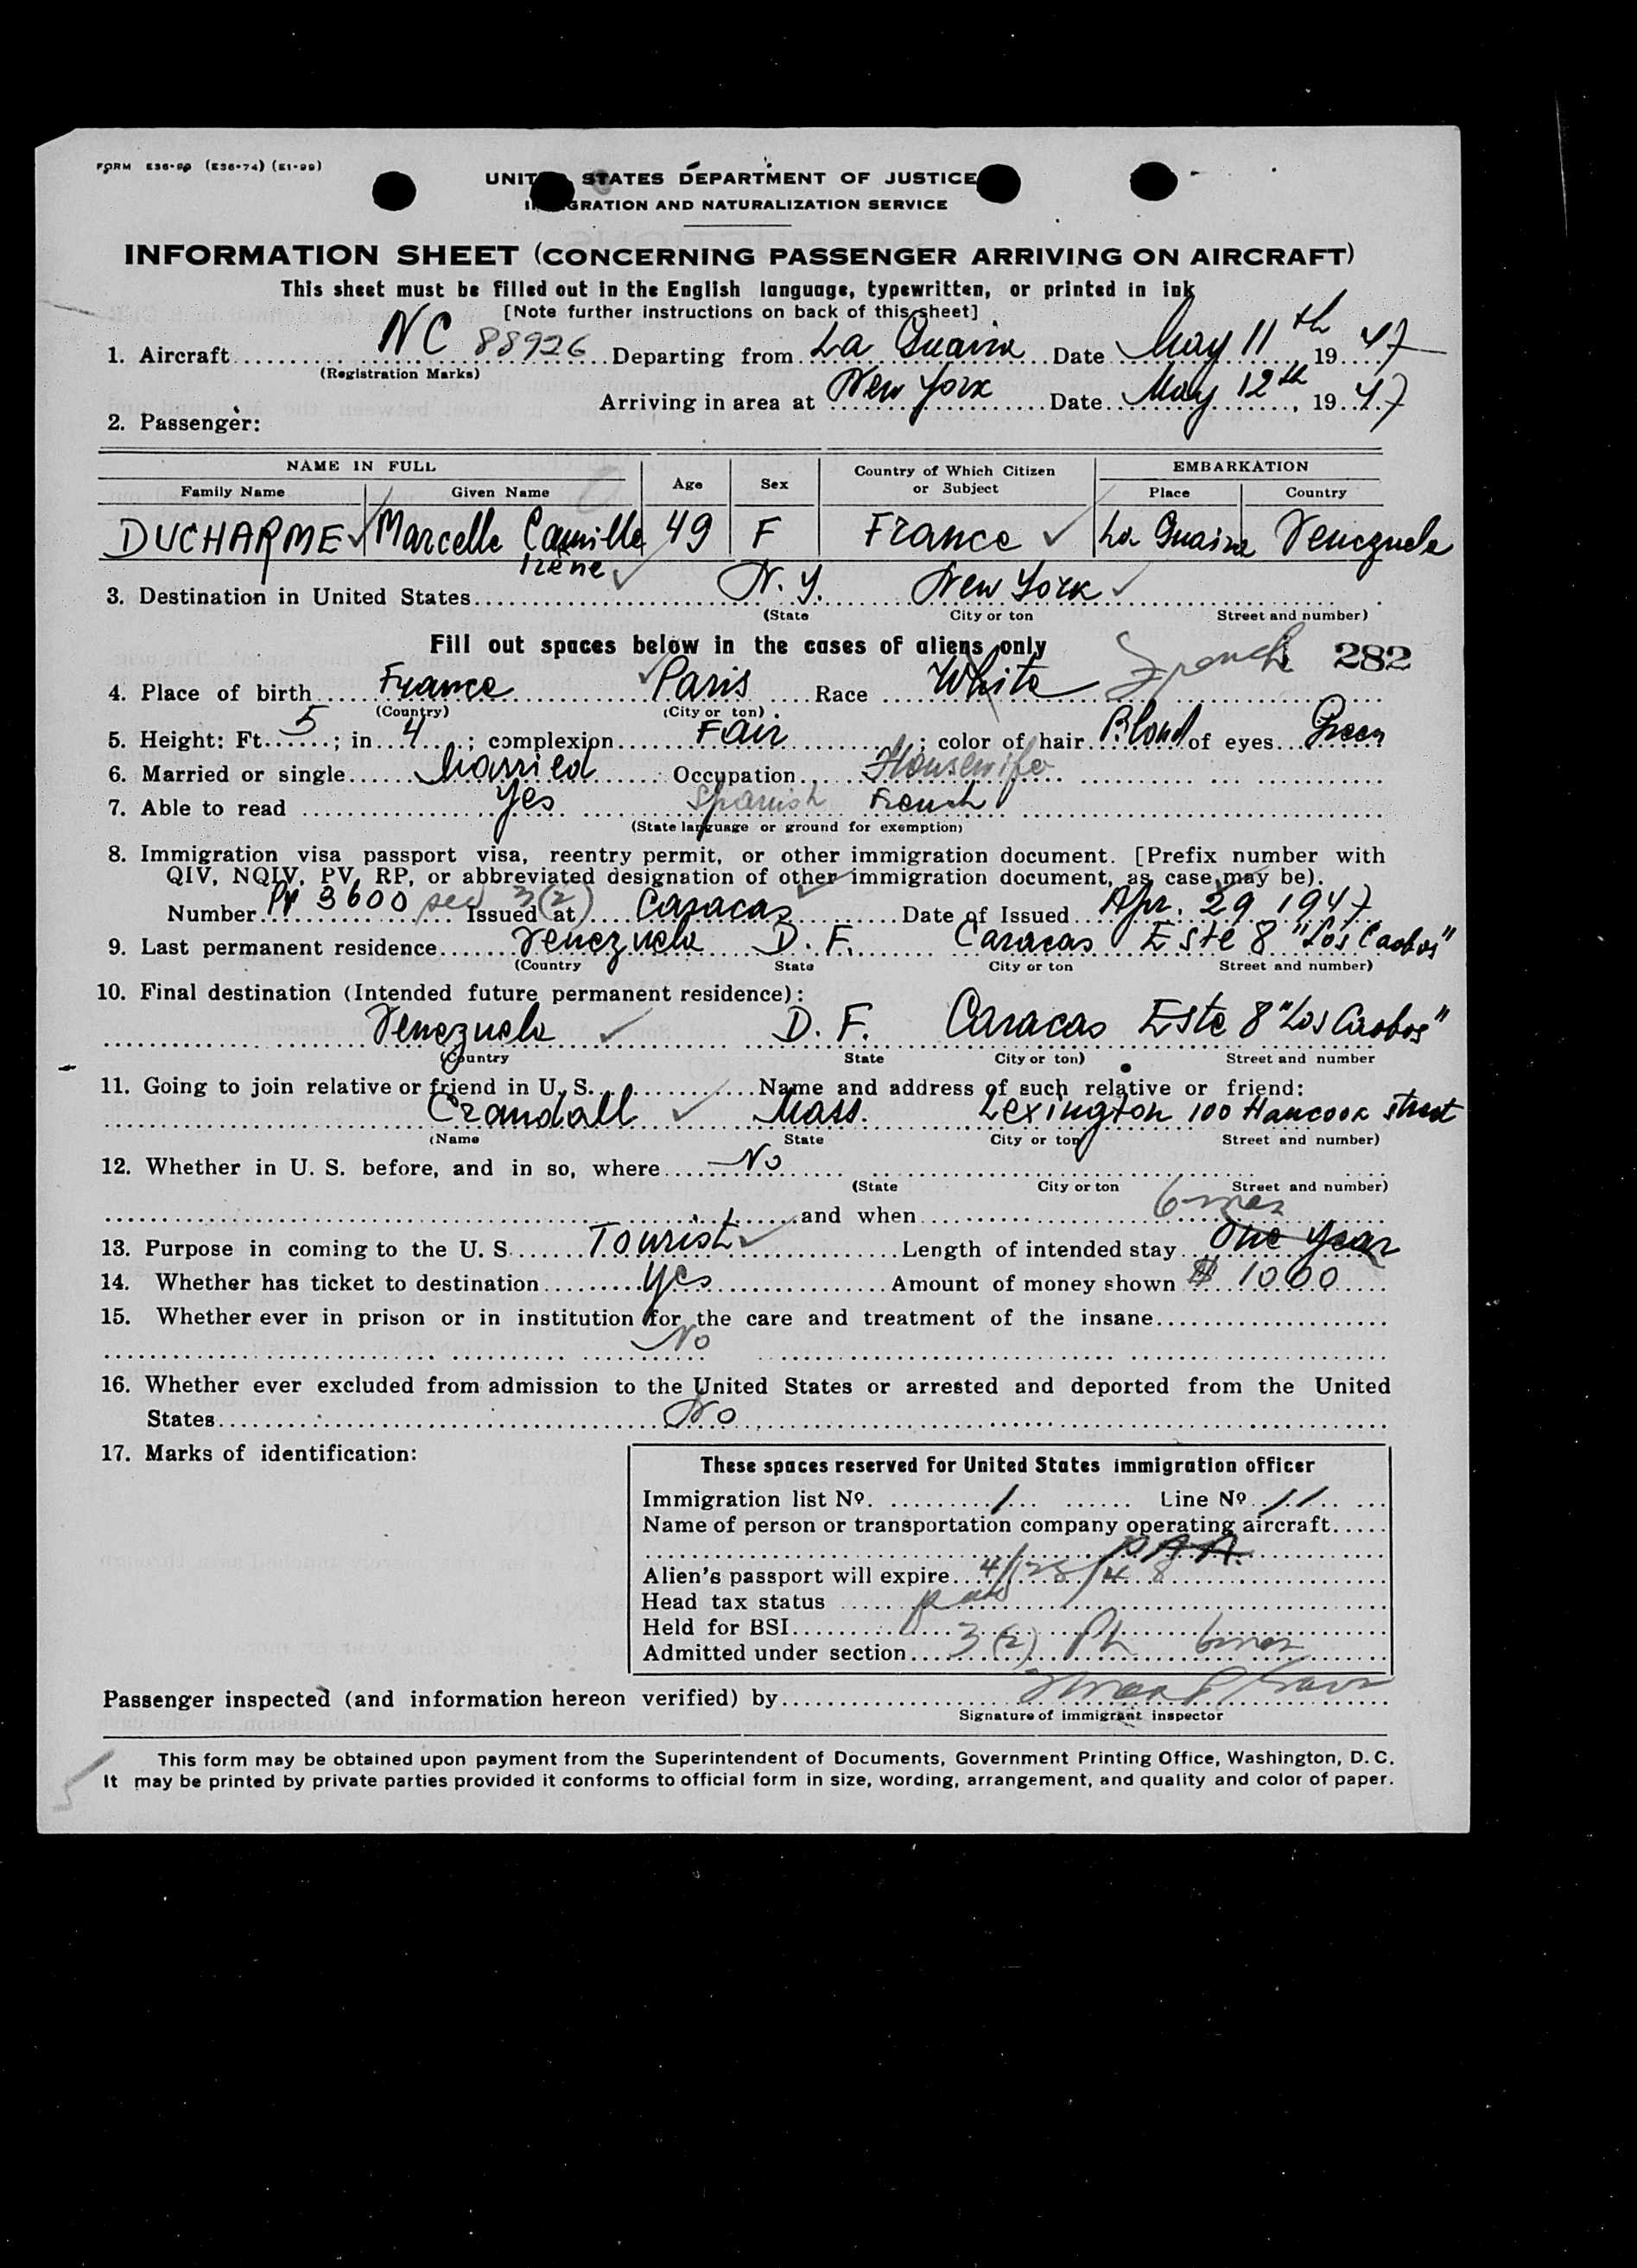 FORM E36-99 (E36-74) (E1-99)
UNIT STATES DEPARTMENT OF JUSTICE
I GRATION AND NATURALIZATION SERVICE
INFORMATION SHEET (CONCERNING PASSENGER ARRIVING ON AIRCRAFT)
This sheet must be filled out in the English language, typewritten, or printed in ink
[Note further instructions on back of this sheet]
1. Aircraft NC 88926 Departing from La Guaira Date May 11th, 1947
(Registration Marks)
Arriving in area at New York Date May 12th, 1947
2. Passenger:
NAME IN FULL Age Sex Country of Which Citizen or Subject EMBARKATION
Family Name Given Name Place Country
DUCHARME Marcelle Camille 49 F France La Guaira Venezuela
Irène
3. Destination in United States N.Y. New York
(State City or ton Street and number)
Fill out spaces below in the cases of aliens only French 282
4. Place of birth France Paris Race White
(Country) (City or ton)
5. Height: Ft. 5; in. 4; complexion Fair; color of hair Blond of eyes Green
6. Married or single Married Occupation Housewife
7. Able to read Yes Spanish French
(State language or ground for exemption)
8. Immigration visa passport visa, reentry permit, or other immigration document. [Prefix number with
QIV, NQIV, PV, RP, or abbreviated designation of other immigration document, as case may be).
Number PV 3600 sec 3(2) Issued at Caracas Date of Issued Apr. 29 1947
9. Last permanent residence Venezuela D. F. Caracas Este 8 "Los Caobos"
(Country State City or ton Street and number)
10. Final destination (Intended future permanent residence):
Venezuela D. F. Caracas Este 8 "Los Caobos"
(Country State City or ton) Street and number
11. Going to join relative or friend in U. S. Name and address of such relative or friend:
Crandall Mass. Lexington 100 Hancock street
(Name State City or ton Street and number)
12. Whether in U. S. before, and in so, where No
(State City or ton Street and number)
6 mos
and when
13. Purpose in coming to the U. S. Tourist Length of intended stay One year
14. Whether has ticket to destination Yes Amount of money shown $ 1000
15. Whether ever in prison or in institution for the care and treatment of the insane
No
16. Whether ever excluded from admission to the United States or arrested and deported from the United
States No
17. Marks of identification:
These spaces reserved for United States immigration officer
Immigration list No. 1 Line No. 11
Name of person or transportation company operating aircraft
PAA.
Alien's passport will expire 4/28/48
Head tax status
Held for BSI
Admitted under section 3(2) 6 mos
Passenger inspected (and information hereon verified) by
Signature of immigrant inspector
This form may be obtained upon payment from the Superintendent of Documents, Government Printing Office, Washington, D. C.
It may be printed by private parties provided it conforms to official form in size, wording, arrangement, and quality and color of paper.